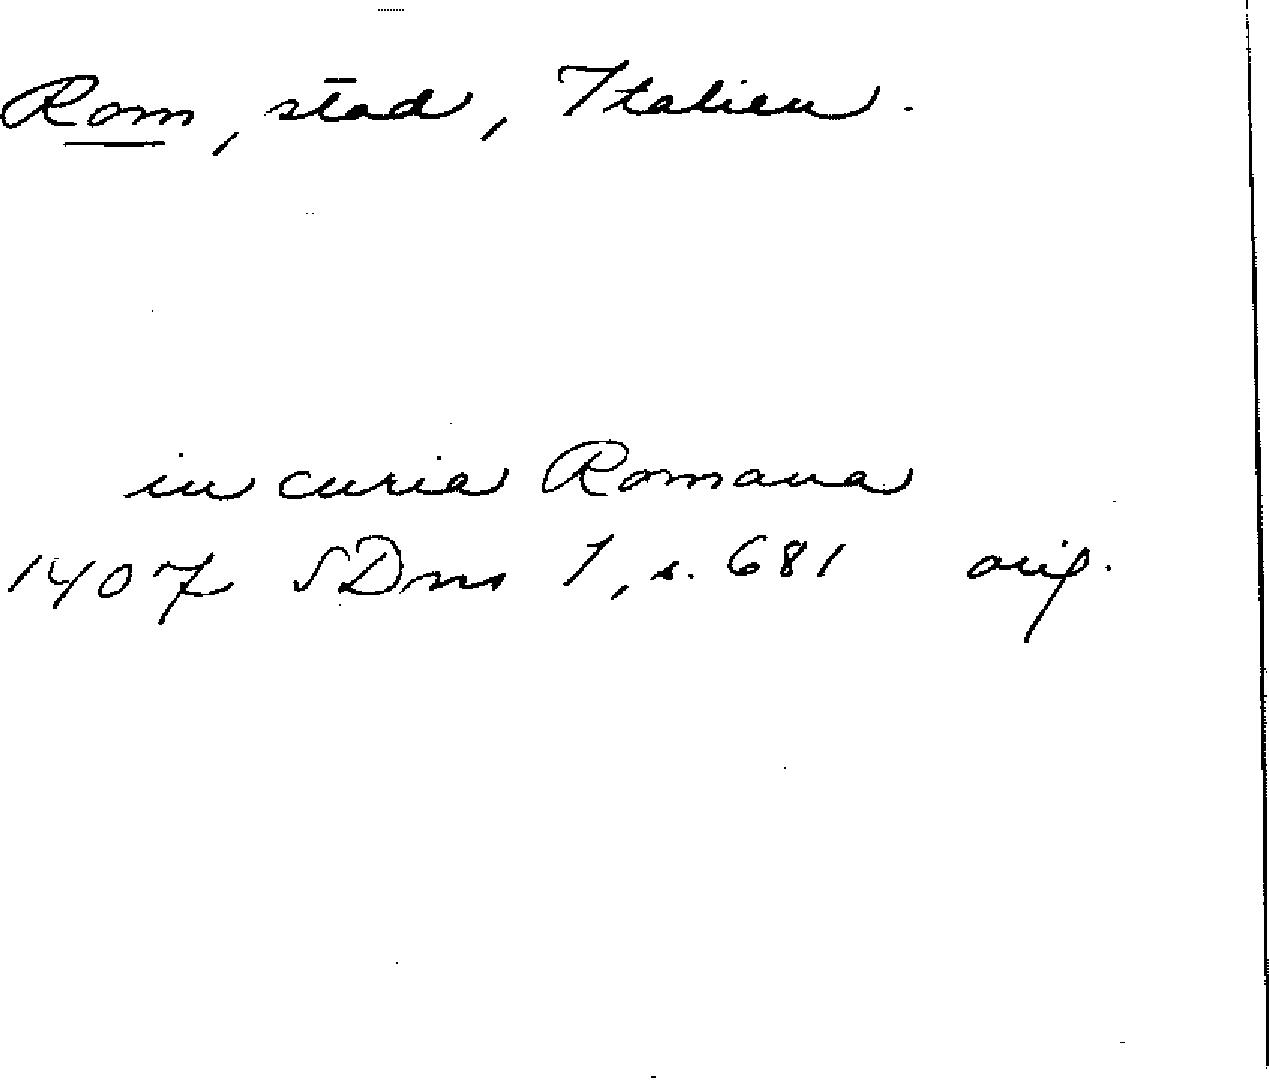 Rom, stad, Italien.
in curia Romana
1407 SDns 1, s. 681 orig.